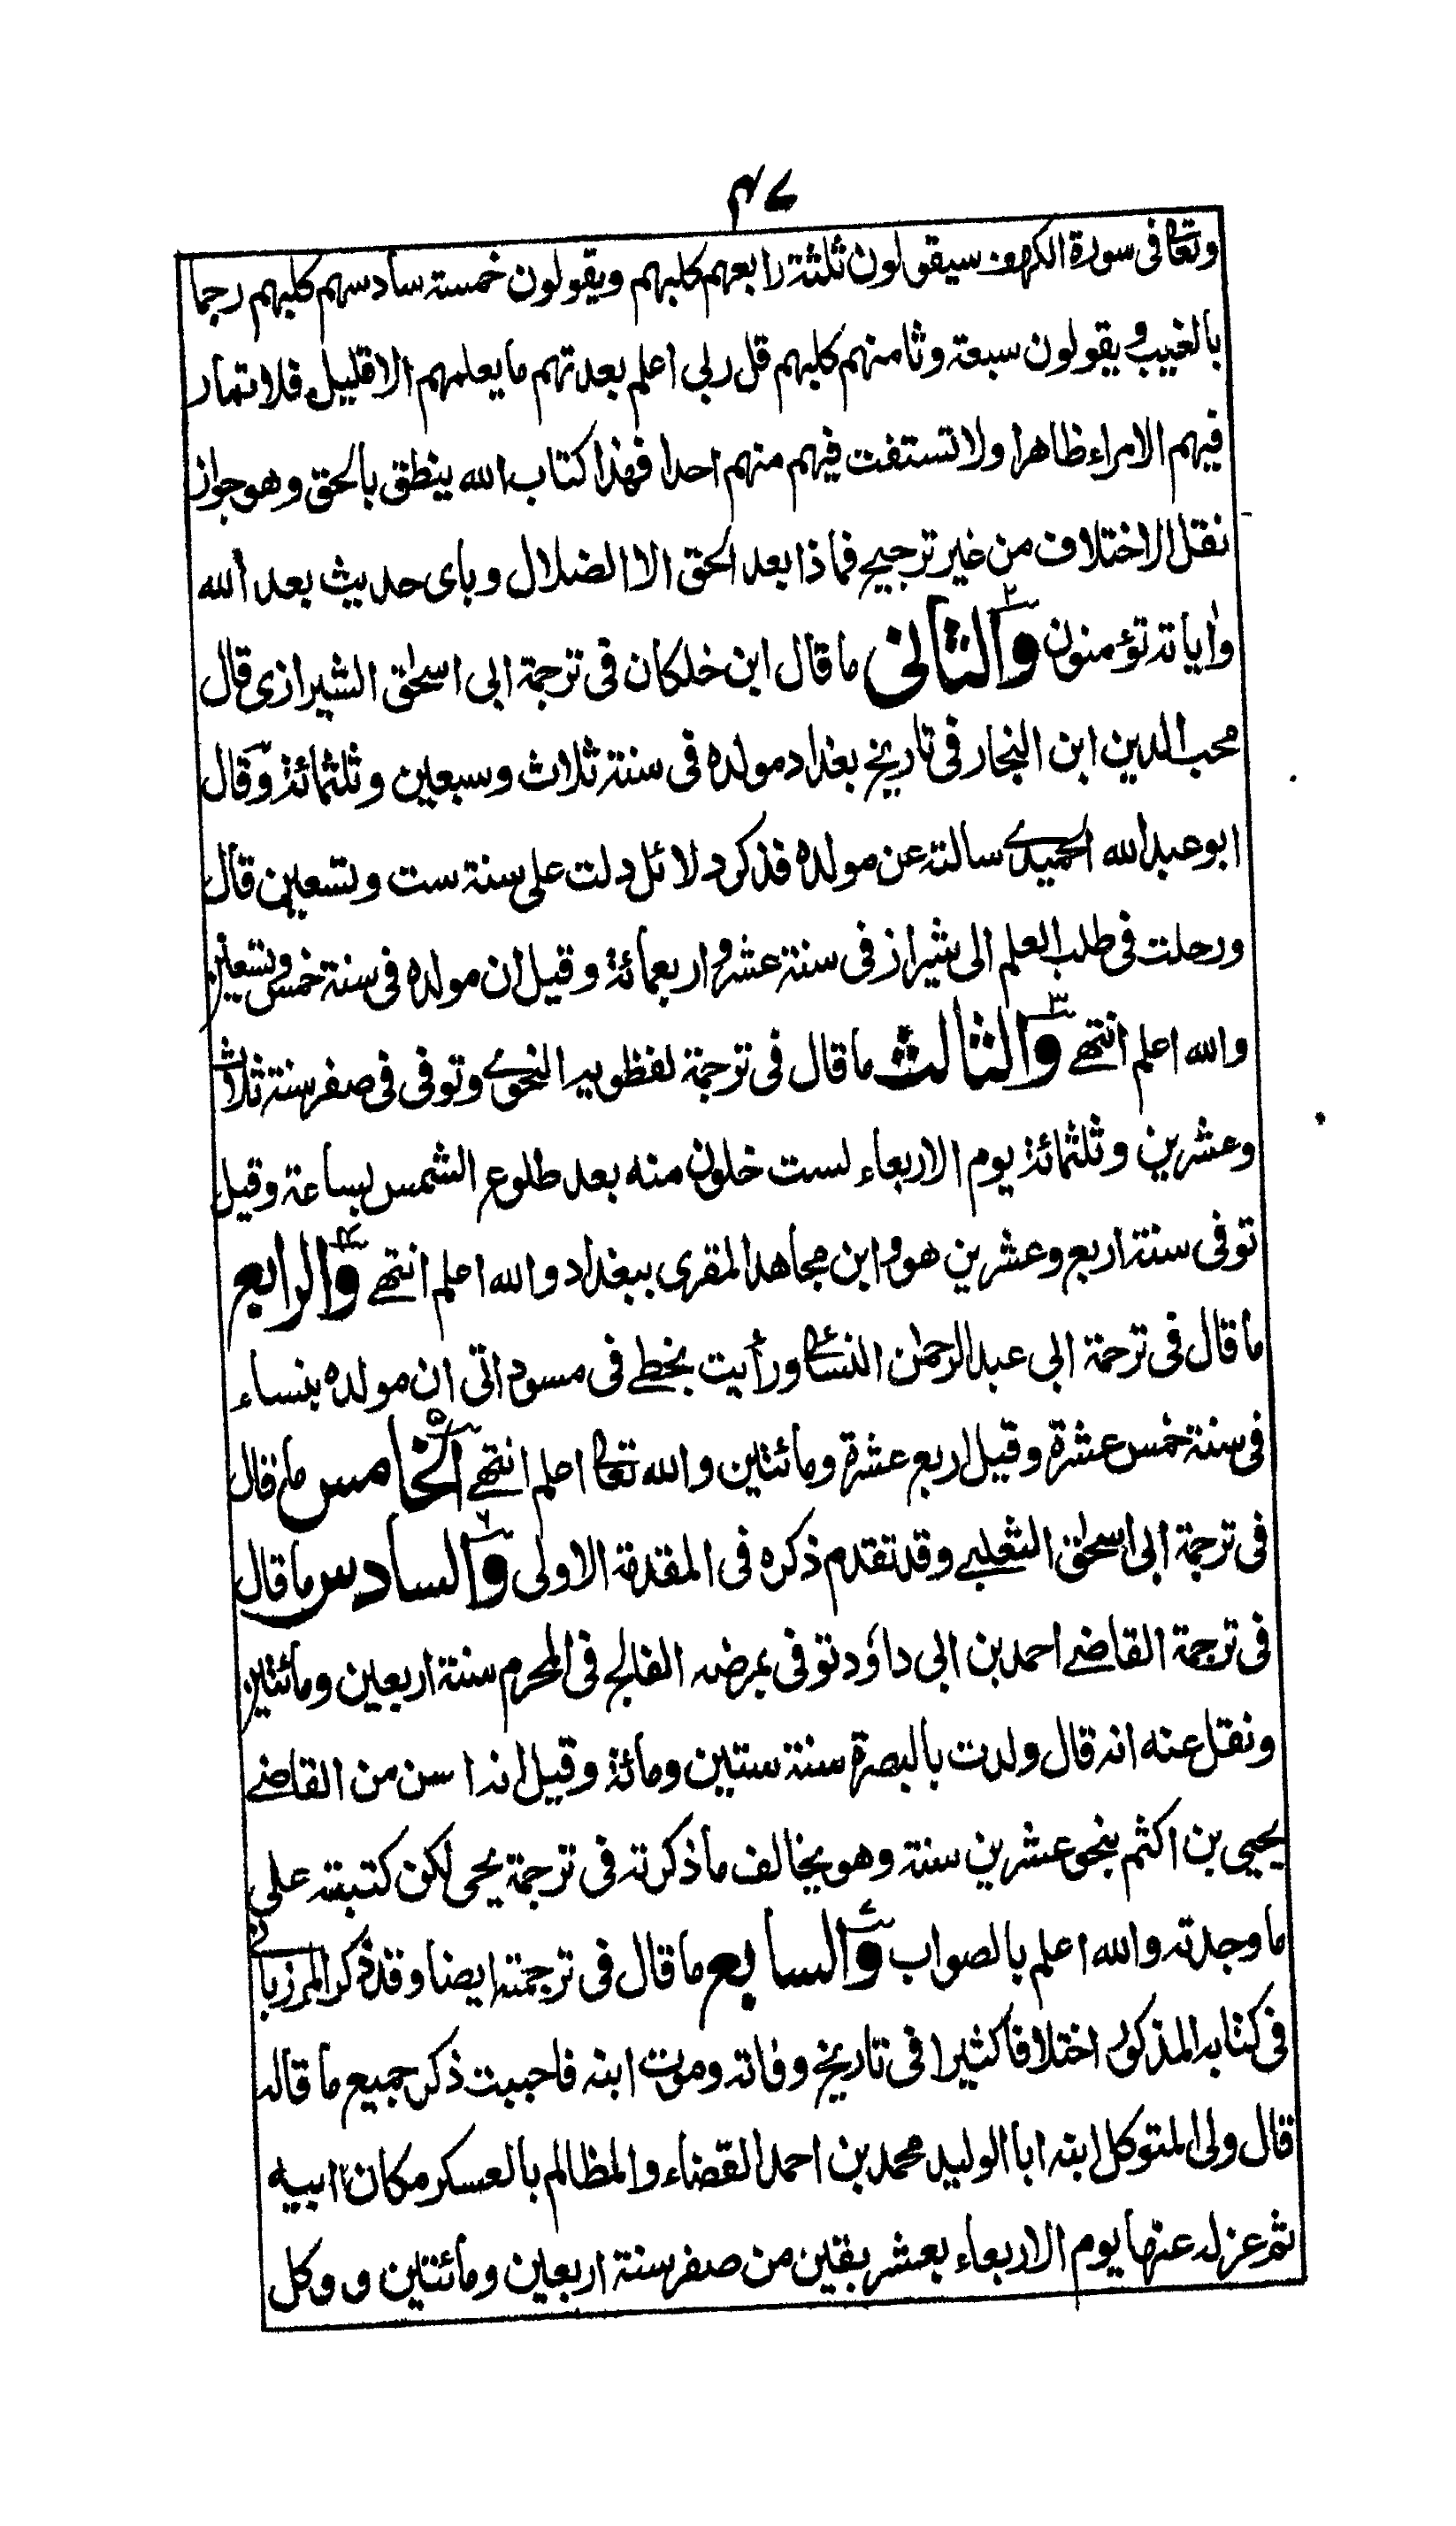 ٤٧
وتعالى فى سورة الكهف سيقولون ثلثة رابعهم كلبهم ويقولون خمسة سادسهم كلبهم رجما
بالغيب ويقولون سبعة وثامنهم كلبهم قل ربى اعلم بعدتهم ما يعلمهم الا قليل فلا تمار
فيهم الا مراء ظاهرا ولا تستفت فيهم منهم احدا فهذا كتاب الله ينطق بالحق وهو جواز
نقل الاختلاف من غير ترجيح فما ذا بعد الحق الا الضلال وباى حديث بعد الله
واياته تؤمنون والثانى ٢ ما قال ابن خلكان فى ترجمة ابى اسحٰق الشيرازى قال
محب الدين ابن النجار فى تاريخ بغداد مولده فى سنة ثلاث وسبعين وثلثمائة وقال
ابو عبد الله الحميدے سالته عن مولده فذكر دلائل دلت على سنة ست وتسعين قال
ورحلت فى طلب العلم الى شيراز فى سنة عشر واربعمائة وقيل ان مولده فى سنة خمس وتسعين
والله اعلم انتهے والثالث ٣ ما قال فى ترجمة نفظويه النحوے وتوفى فى صفر سنة ثلاث
وعشرين وثلثمائة يوم الاربعاء لست خلون منه بعد طلوع الشمس بساعة وقيل
توفى سنة اربع وعشرين هو وابن مجاهد المقرى ببغداد والله اعلم انتهے والرابع ٤
ما قال فى ترجمة ابى عبد الرحمٰن النسائى ورأيت بخطے فى مسوداتى ان مولده بنساء
فى سنة خمس عشرة وقيل اربع عشرة ومائتين والله تعالى اعلم انتهے الخامس ٥ ما قال
فى ترجمة ابى اسحٰق الثعلبے وقد تقدم ذكره فى المقدمة الاولى والسادس ٦ ما قال
فى ترجمة القاضے احمد بن ابى داؤد توفى بمرضه الفالج فى المحرم سنة اربعين ومائتين
ونقل عنه انه قال ولدت بالبصرة سنة ستين ومائة وقيل انه اسن من القاضے
يحيى بن اكثم بنحو عشرين سنة وهو يخالف ما ذكرته فى ترجمة يحيى لكن كتبته على
ما وجدته والله اعلم بالصواب والسابع ٧ ما قال فى ترجمته ايضا وقد ذكر المرزبانے
فى كتابه المذكور اختلافا كثيرا فى تاريخ وفاته وموت ابنه فاحببت ذكر جميع ما قاله
قال ولى المتوكل ابنه ابا الوليد محمد بن احمد القضاء والمظالم بالعسكر مكان ابيه
ثم عزله عنها يوم الاربعاء بعشر بقين من صفر سنة اربعين ومائتين ووكل